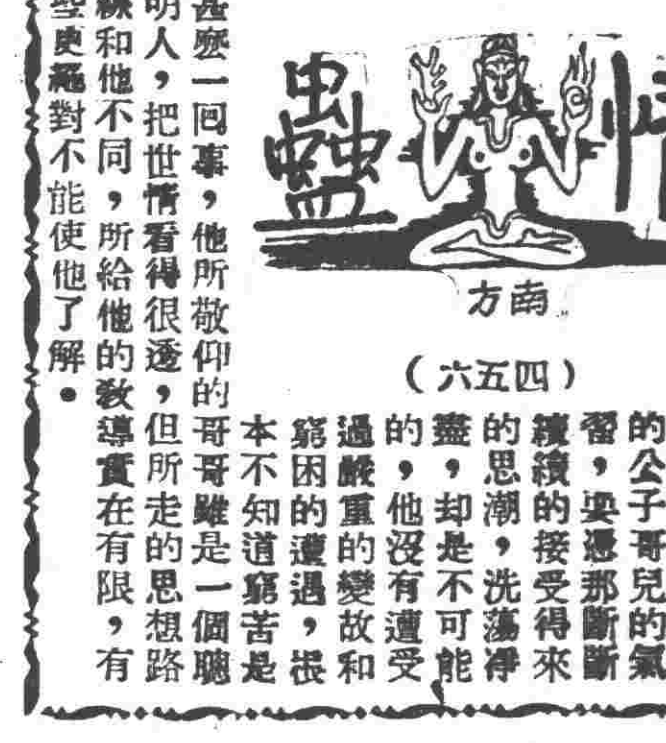 情蠱
南方
(四五六)
的公子哥兒的氣
習，要憑那斷斷
續續的接受得來
的思潮，洗蕩淨
盡，却是不可能
的，他沒有遭受
過嚴重的變故和
窮困的遭遇，根
本不知道窮苦是
甚麼一回事，他所敬仰的哥哥雖是一個聰
明人，把世情看得很透，但所走的思想路
線和他不同，所給他的教導實在有限，有
些更絕對不能使他了解。